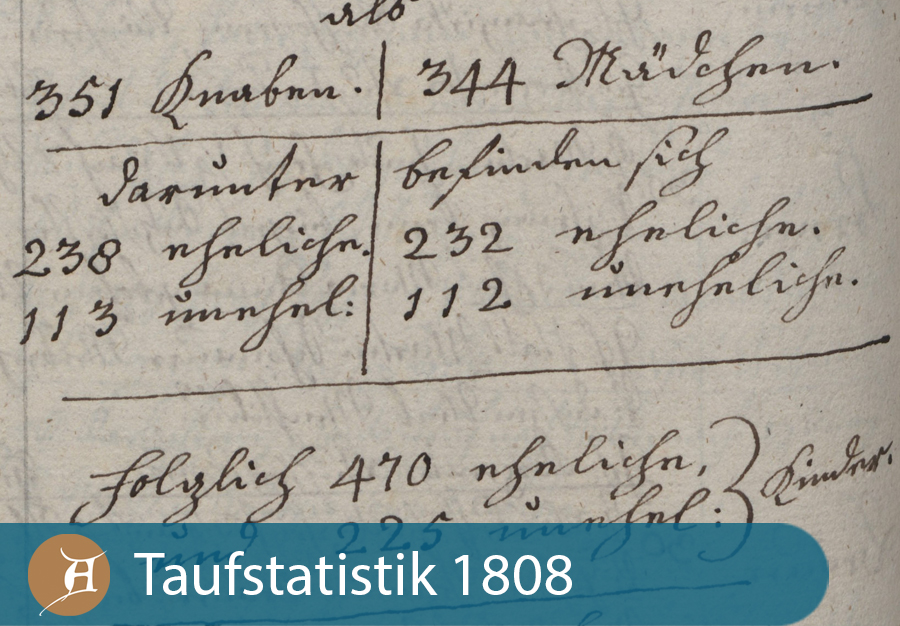 als
351 Knaben. | 344 Mädchen.
darunter | befinden sich
238 eheliche. | 232 eheliche.
113 unehel: | 112 uneheliche.
folglich 470 eheliche,
und 225 unehel: } Kinder.
Taufstatistik 1808